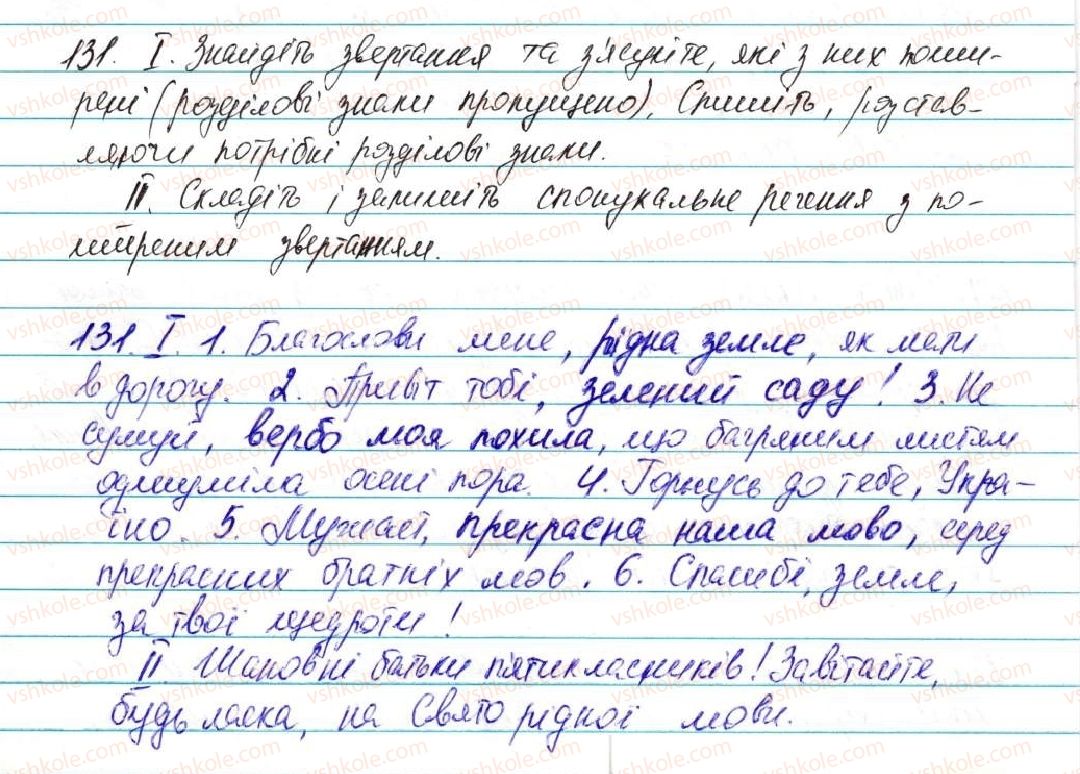 131. І. Знайдіть звертання та з'ясуйте, які з них поши-
рені (розділові знаки пропущено). Спишіть, розстав-
ляючи потрібні розділові знаки.
ІІ. Складіть і запишіть спонукальне речення з по-
ширеним звертанням.
131. І. 1. Благослови мене, рідна земле, як мати
в дорогу. 2. Привіт тобі, зелений саду! 3. Не
сумуй, вербо моя похила, що багряним листям
одшуміла осені пора. 4. Горнусь до тебе, Укра-
їно. 5. Мужай, прекрасна наша мово, серед
прекрасних братніх мов. 6. Спасибі, земле,
за твої щедроти!
ІІ. Шановні батьки п'ятикласників! Завітайте,
будь ласка, на Свято рідної мови.
vshkole.com